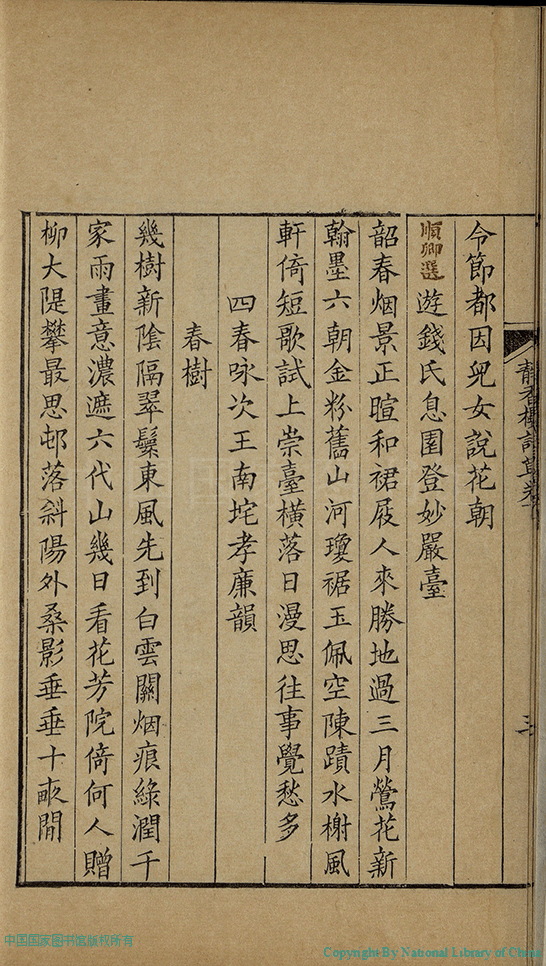 令節都因兒女說花朝
順卿選
遊錢氏息園登妙嚴臺
韶春烟景正暄和裙屐人來勝地過三月鶯花新
翰墨六朝金粉舊山河瓊裾玉佩空陳蹟水榭風
軒倚短歌試上崇臺橫落日漫思往事覺愁多
四春咏次王南垞孝廉韻
春樹
幾樹新陰隔翠鬟東風先到白雲關烟痕綠潤千
家雨畫意濃遮六代山幾日看花芳院倚何人贈
柳大隄攀最思邨落斜陽外桑影垂垂十畝閒
三
中国国家图书馆版权所有
Copyright By National Library of China